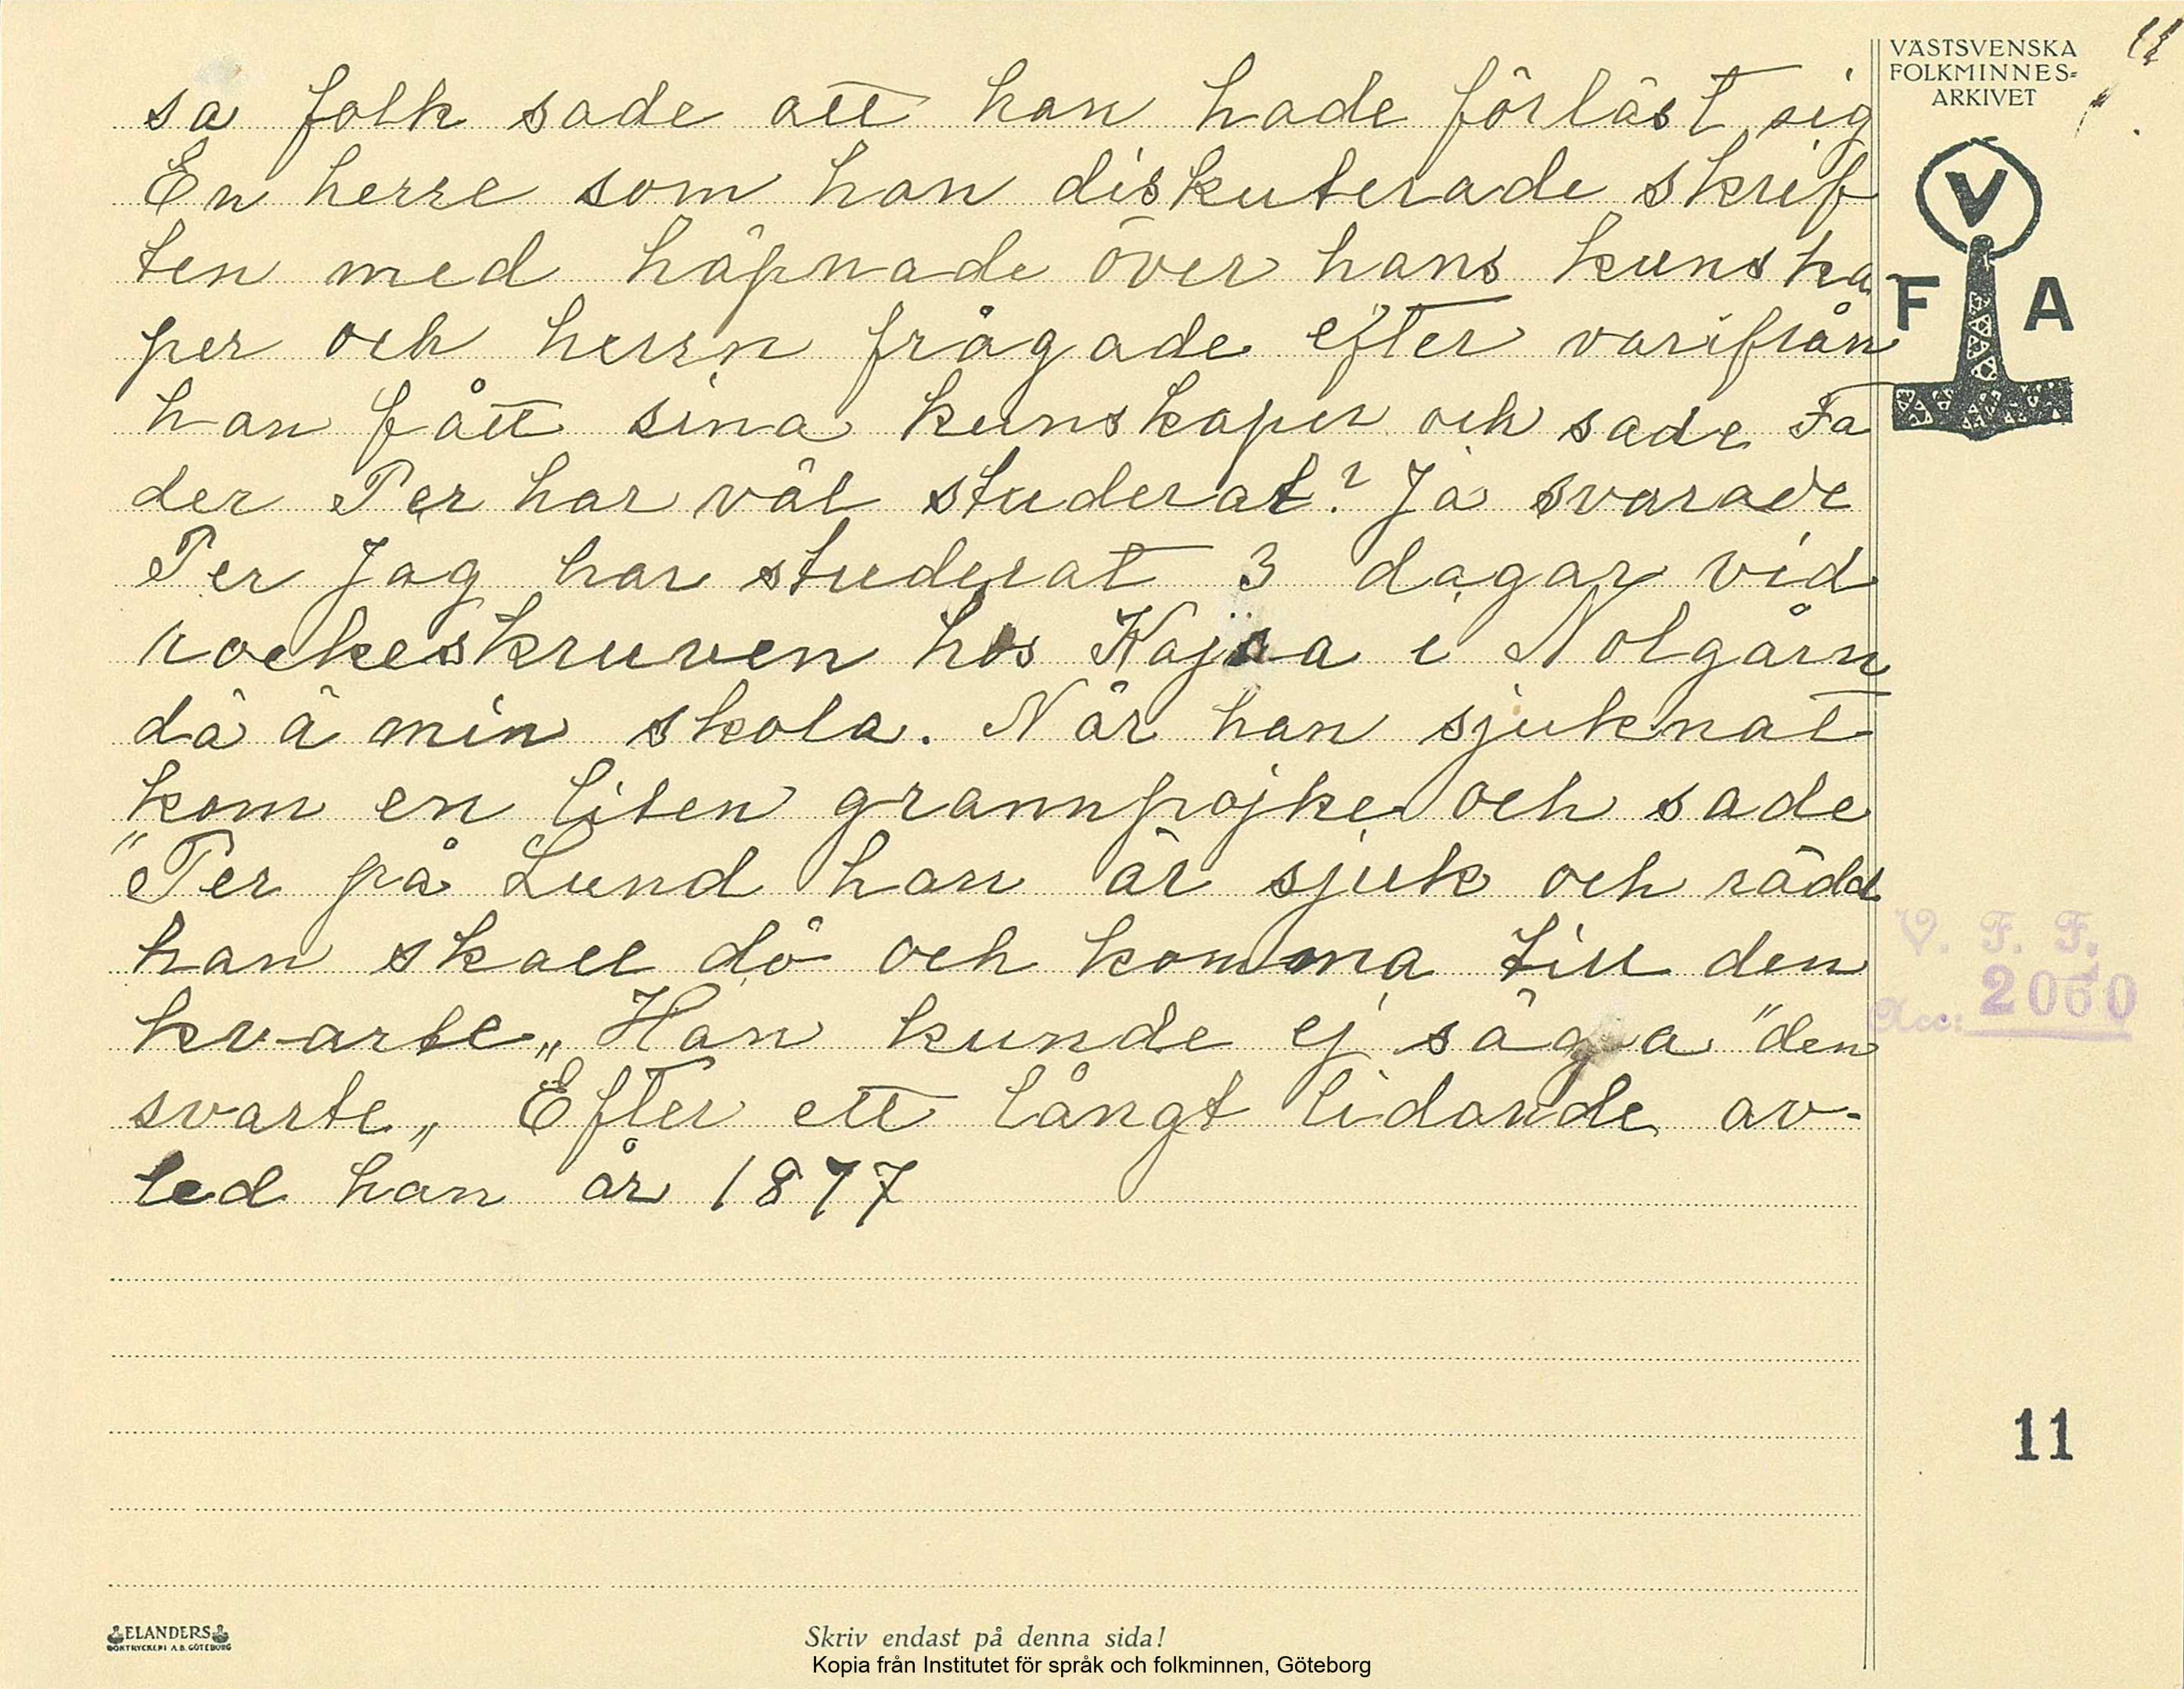 så folk sade att han hade förläst sig
En herre som han diskuterade skrif
ten med häpnade över hans kunska
per och herrn frågade efter varifrån
han fått sina kunskaper och sade Fa
der Per har väl studerat? Ja svarade
Per Jag har studerat 3 dagar vid
rockeskruven hos Kajsa i Nolgårn
dä ä min skola. När han sjuknat
kom en liten grannpojke och sade
"Per på Lund han är sjuk och rädd
han skall dö och komma till den
kvarte„ Han kunde ej säga "den
svarte„ Efter ett långt lidande av-
led han år 1877
VÄSTSVENSKA
FOLKMINNES=
ARKIVET
V
F A
V. F. F.
Acc:
11
ELANDERS
BOKTRYCKERI A.B. GÖTEBORG
Skriv endast på denna sida!
Kopia från Institutet för språk och folkminnen, Göteborg